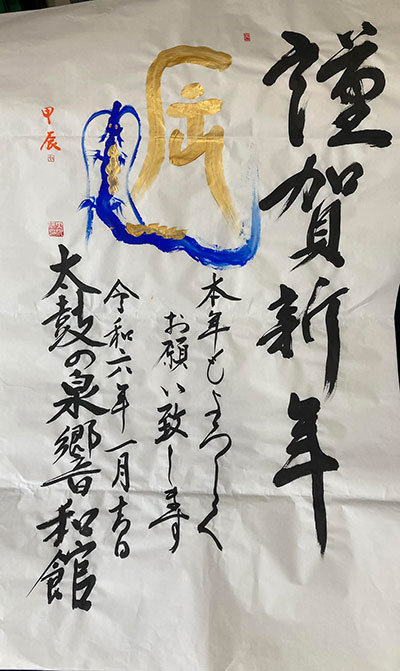 謹賀新年
辰
本年もよろしく
お願い致します
令和六年一月吉日
太鼓の泉郷 音和館
甲辰